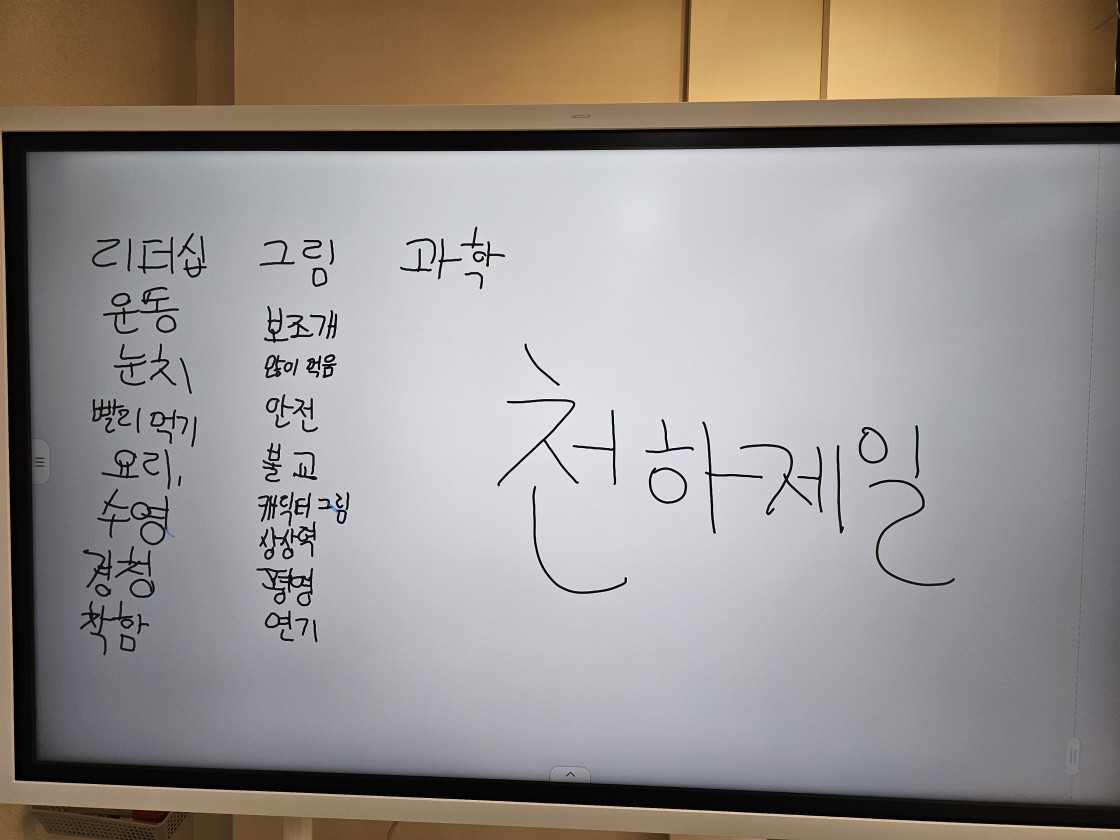 리더십
운동
눈치
빨리 먹기
요리,
수영
경청
착함
그림
보조개
많이 먹음
안전
불교
캐릭터 그림
상상력
평영
연기
과학
천하제일